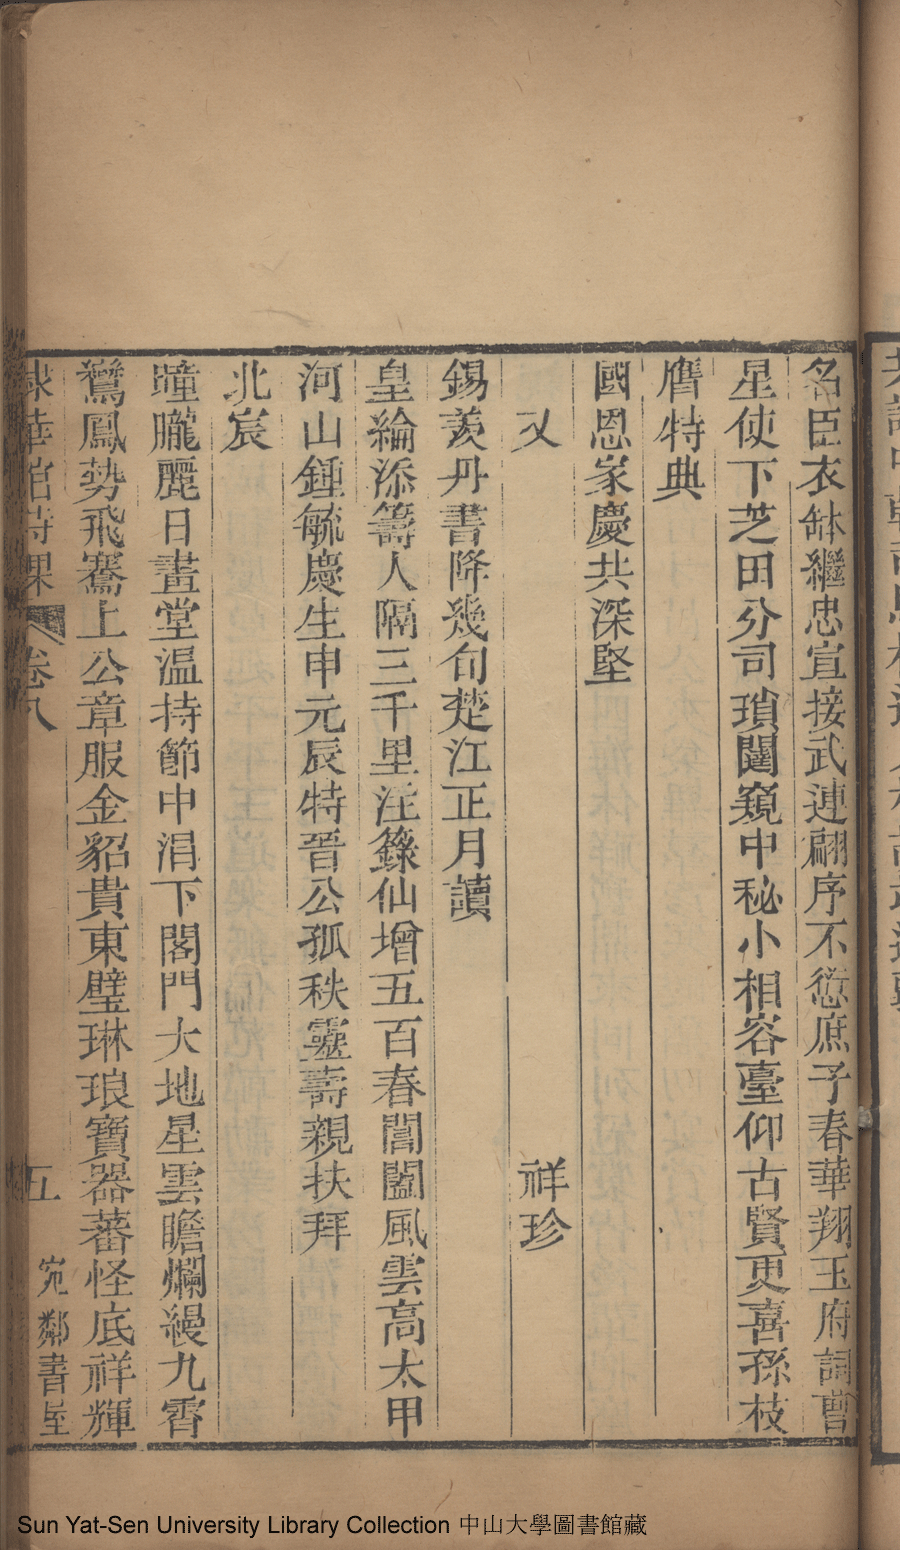 名臣衣缽繼忠宣接武連翩序不愆庶子春華翔玉府詞曹
星使下芝田分司瑣闥窺中秘小相容臺仰古賢更喜孫枝
膺特典
國恩家慶共深堅
又 祥珍
錫羨丹書降幾旬楚江正月讀
皇綸添籌人隔三千里注籙仙增五百春閶闔風雲高太甲
河山鍾毓慶生申元辰特晉公孤秩靈壽親扶拜
北宸
曈朧麗日畫堂温持節中涓下閣門大地星雲瞻爛縵九霄
鸞鳳勢飛騫上公章服金貂貴東壁琳琅寶器蕃怪底祥輝
華館詩課 卷八 五 宛鄰書屋
Sun Yat-Sen University Library Collection 中山大學圖書館藏